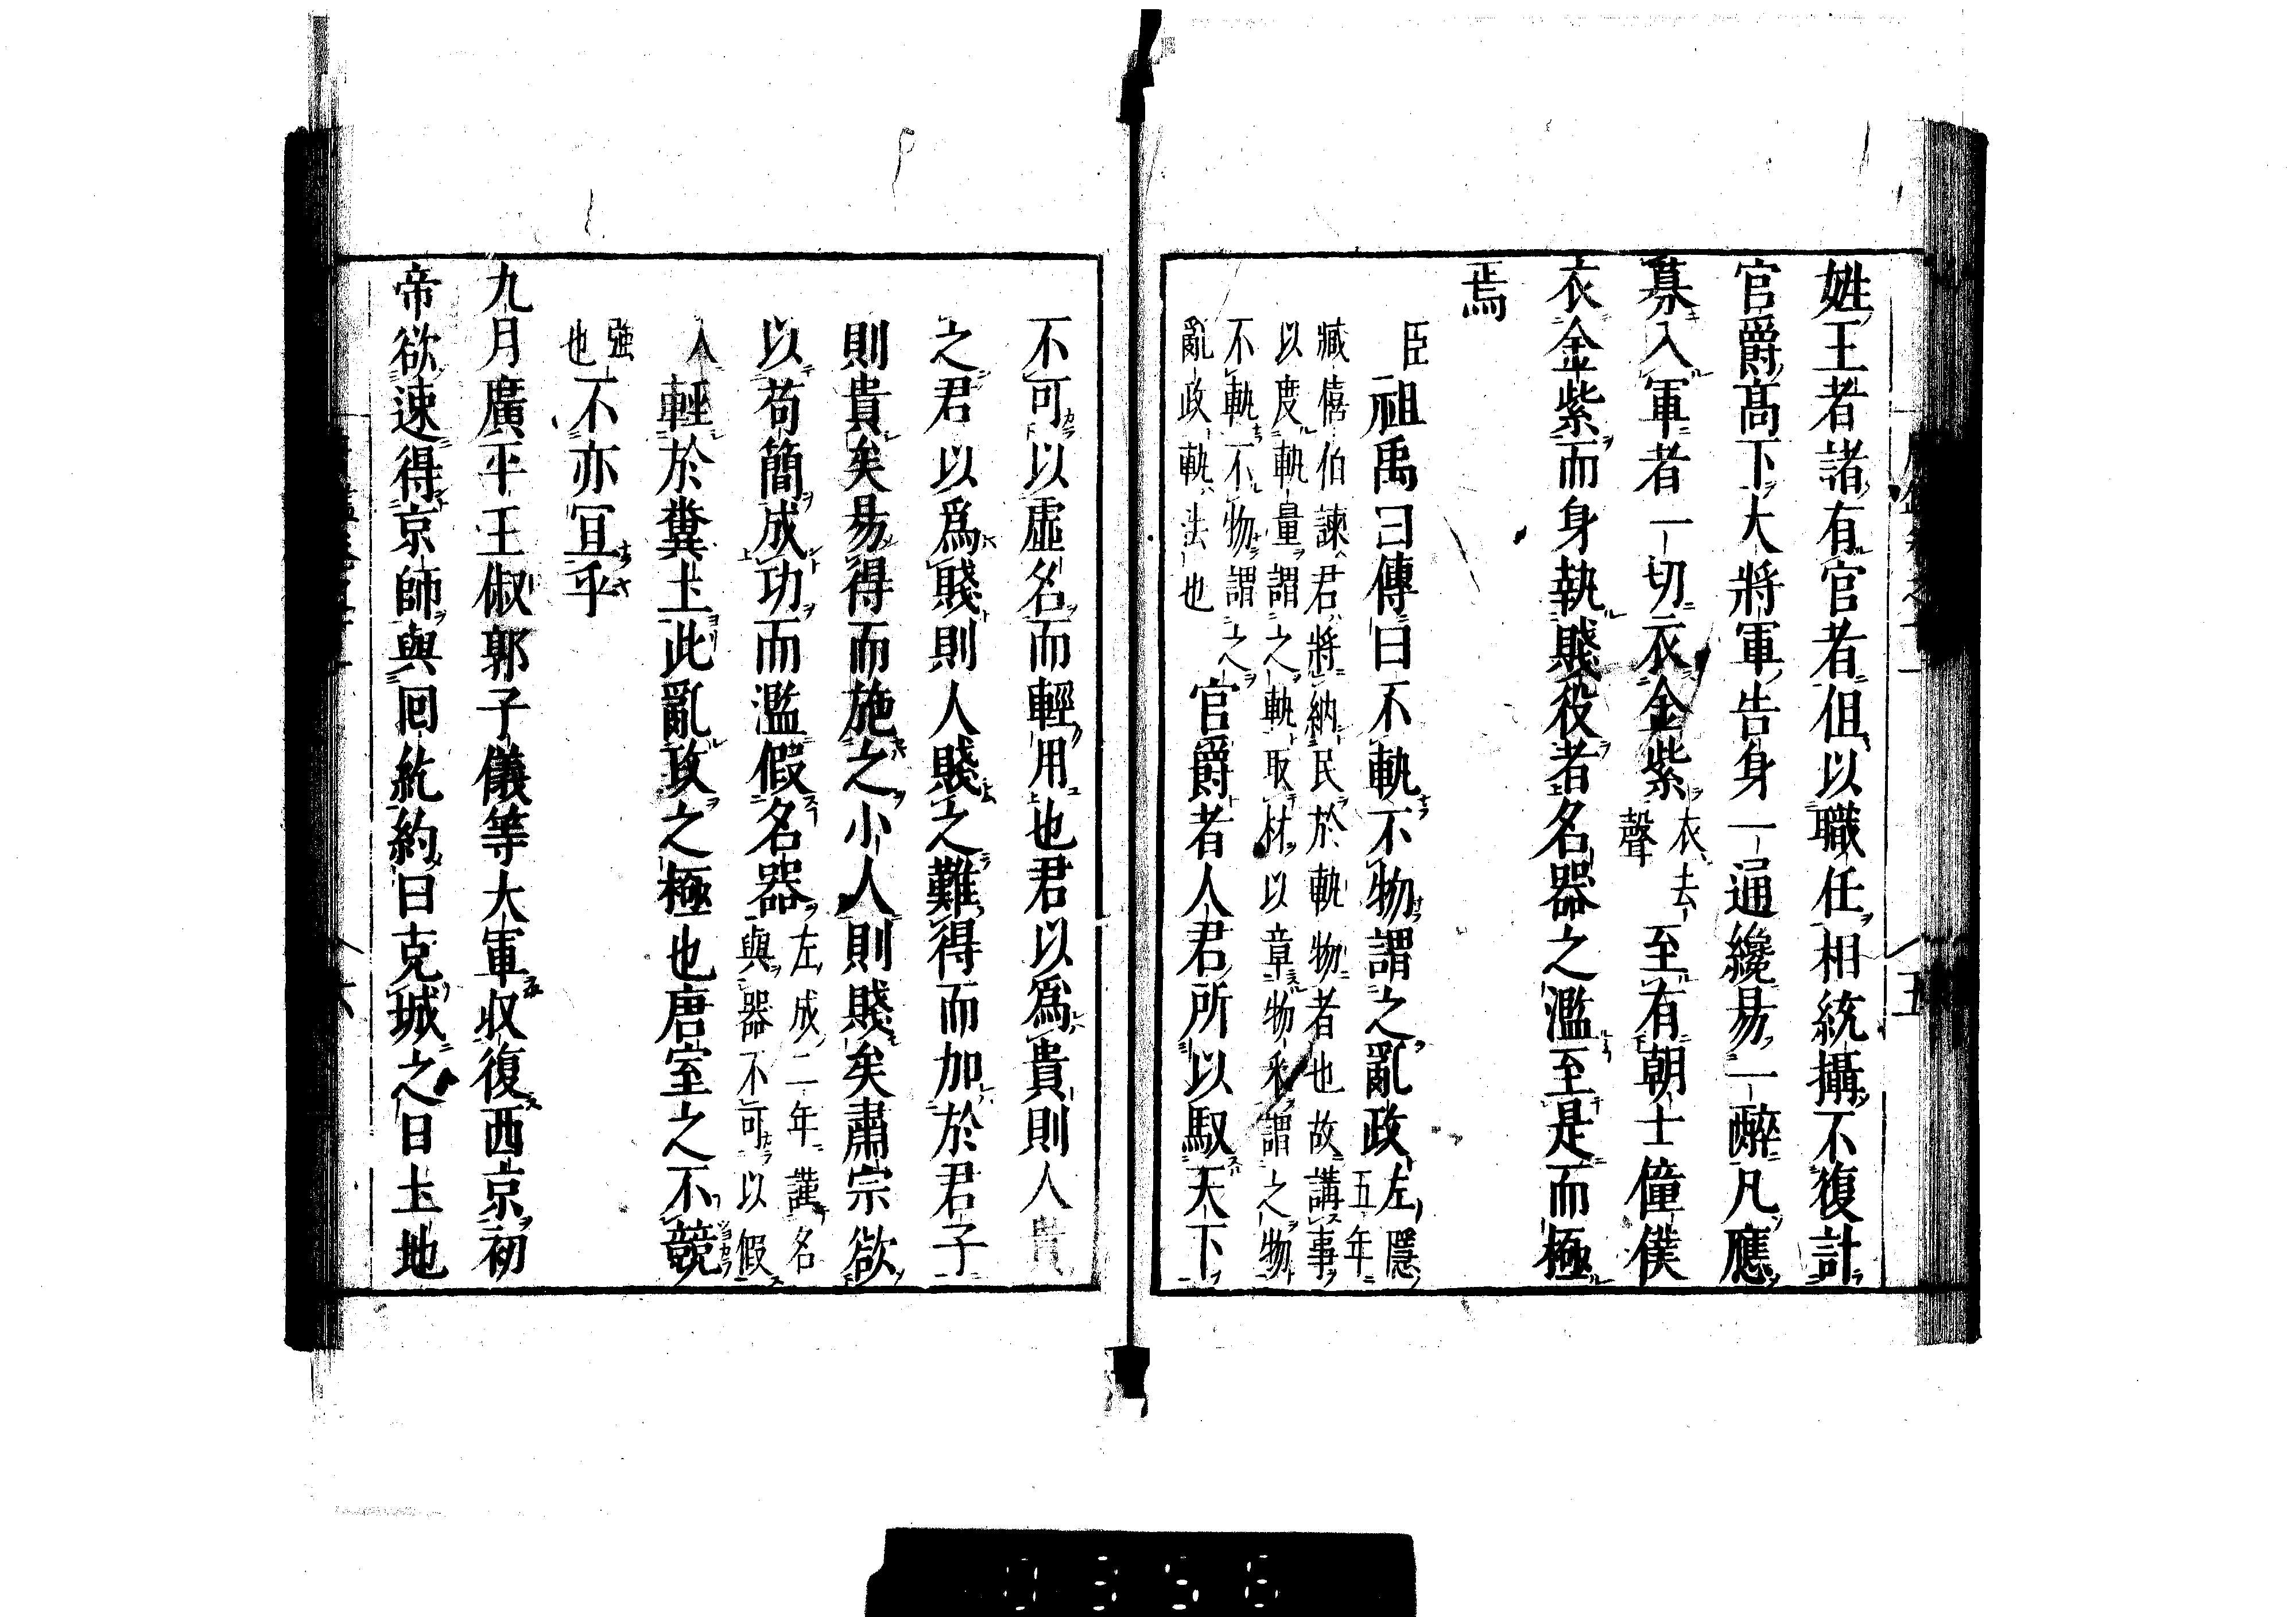 姓王者諸有官者伹以職任相統攝不復計
官爵高下大將軍告身一通纔易一醉凡應
募入軍者一切衣金紫衣去聲至有朝士僮僕
衣金紫而身執賤役者名器之濫至是而極
焉
臣祖禹曰傳曰不軌不物謂之亂政左隱五年
臧僖伯諫君將納民於軌物者也故講事
以度軌量謂之軌取材以章物采謂之物
不軌不物謂之
亂政軌法也官爵者人君所以馭天下
不可以虛名而輕用也君以爲貴則人貴
之君以爲賤則人賤之難得而加於君子
則貴矣易得而施之小人則賤矣肅宗欲
以苟簡成功而濫假名器左成二年謹名與器不可以假
人輕於糞土此亂政之極也唐室之不競
強也不亦宜乎
九月廣平王俶郭子儀等大軍収復西京初
帝欲速得京師與回紇約曰克城之日土地
五
六
0356